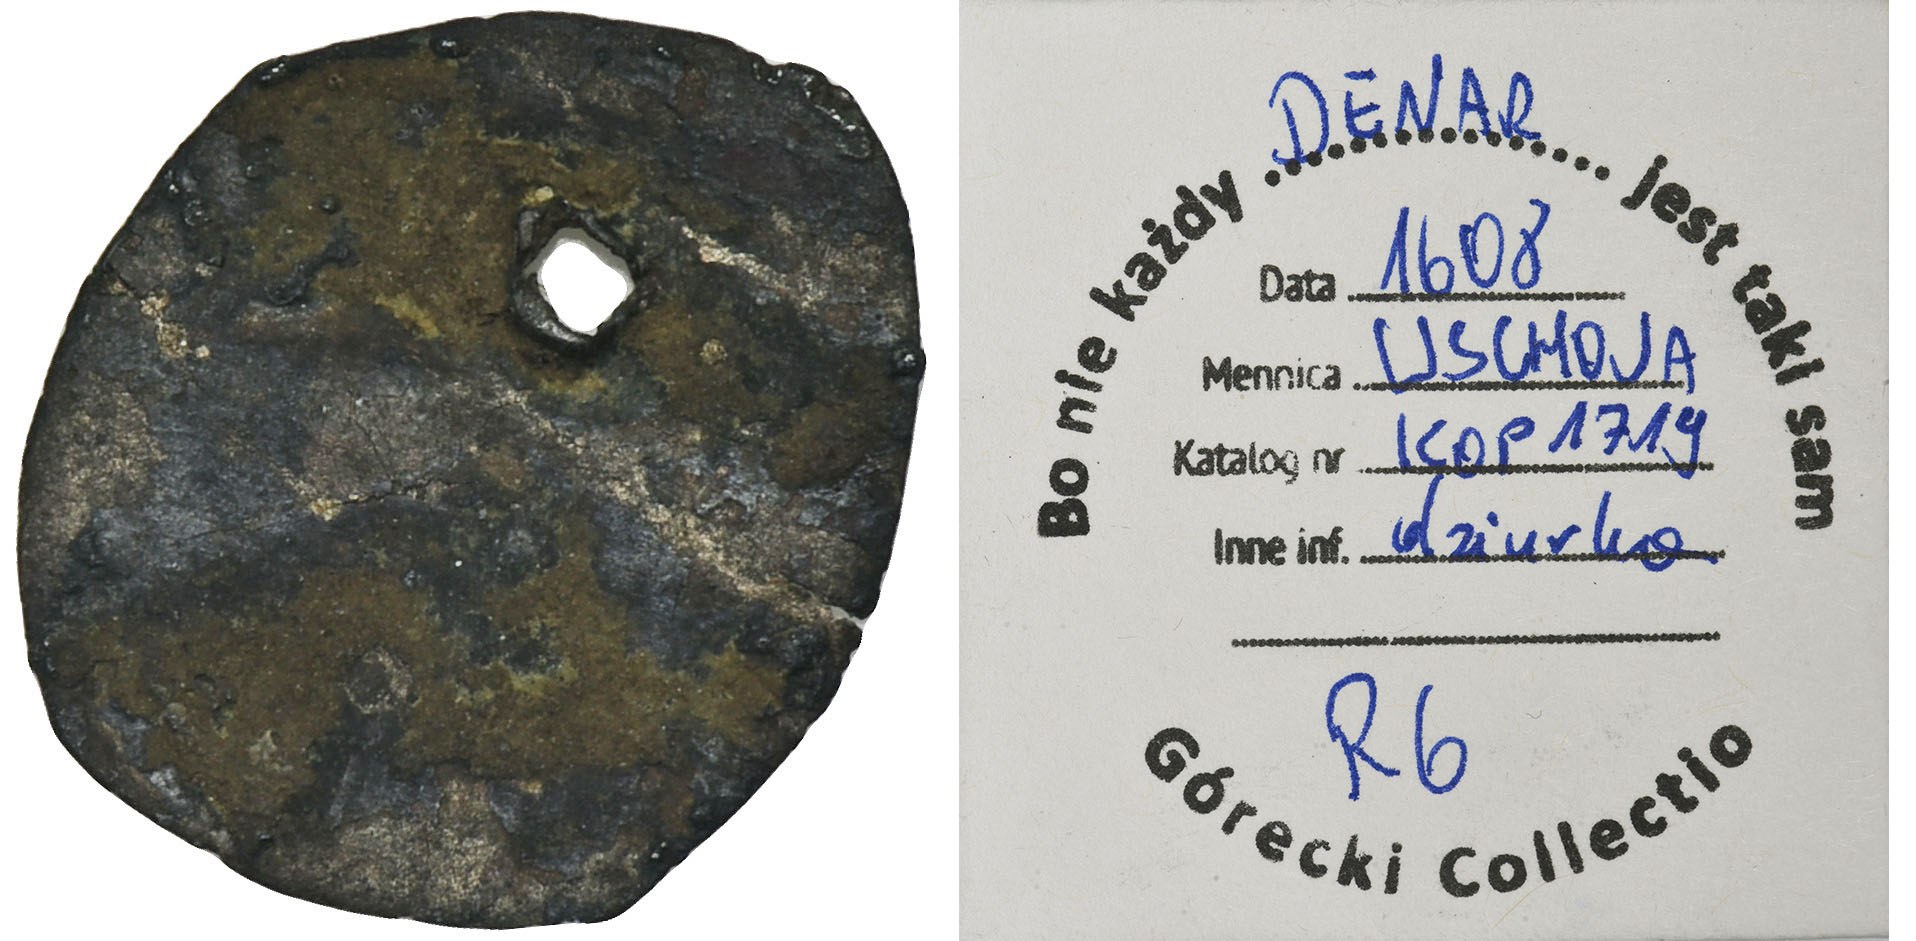 Bo nie każdy DENAR jest taki sam
Data 1608
Mennica WSCHOWA
Katalog nr KOP 1719
Inne inf. dziurka
R6
Górecki Collectio